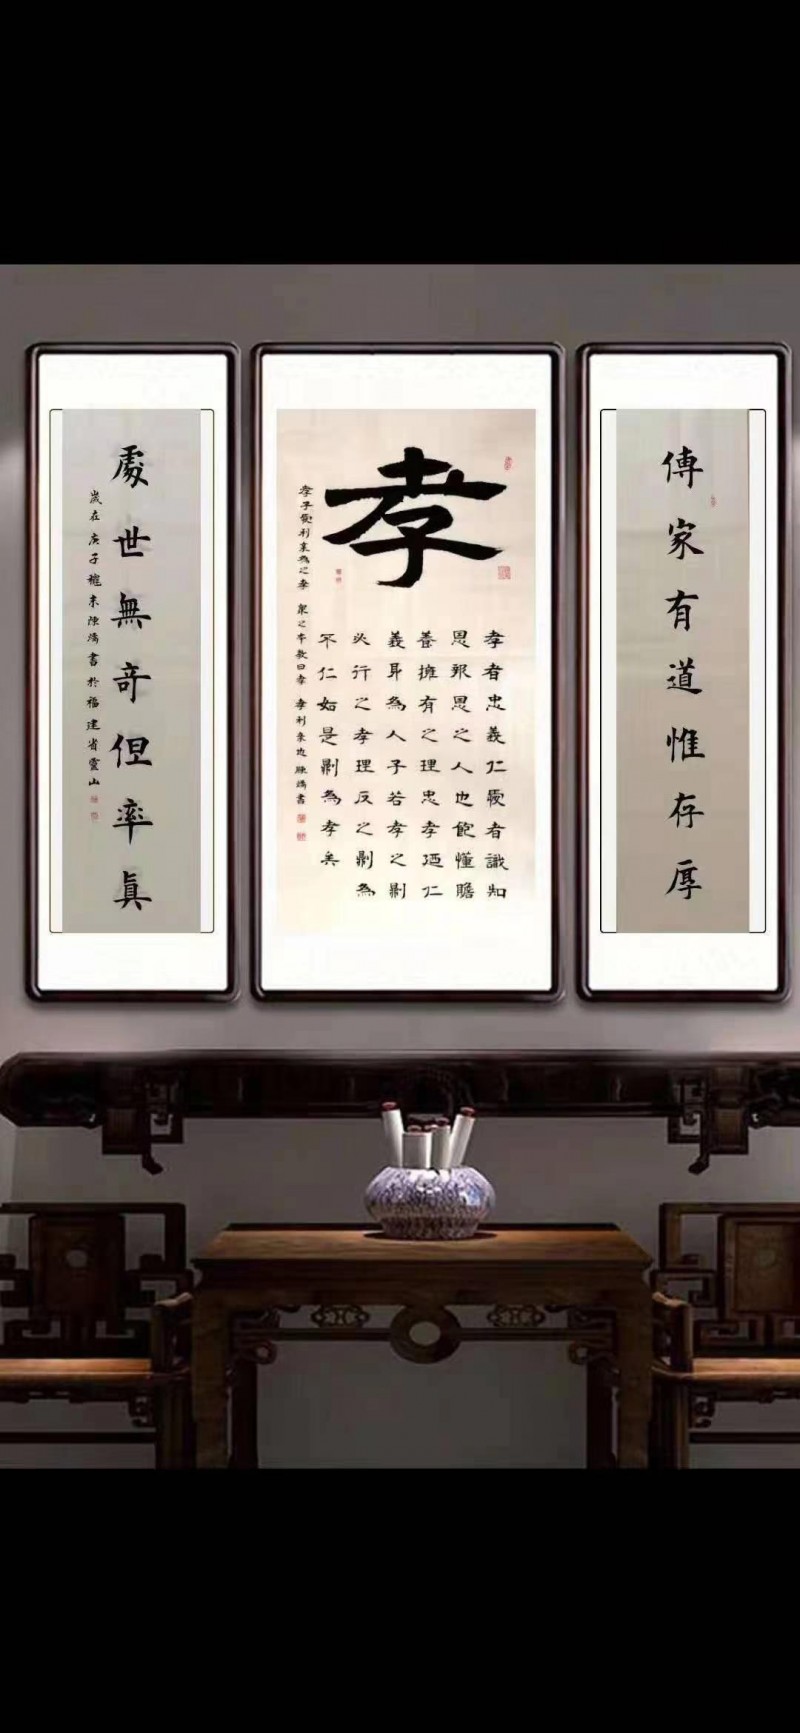 傳家有道惟存厚
孝
孝者忠義仁愛者識知
恩報恩之人也飽懂贍
養擁有之理忠孝廼仁
義耳為人子若孝之則
必行之孝理反之則為
不仁如是則為孝矣
孝子愛利親為之孝 衆之本教曰孝 孝利亲也
處世無奇但率真
歲在庚子穐末陳鴻書於福建省靈山